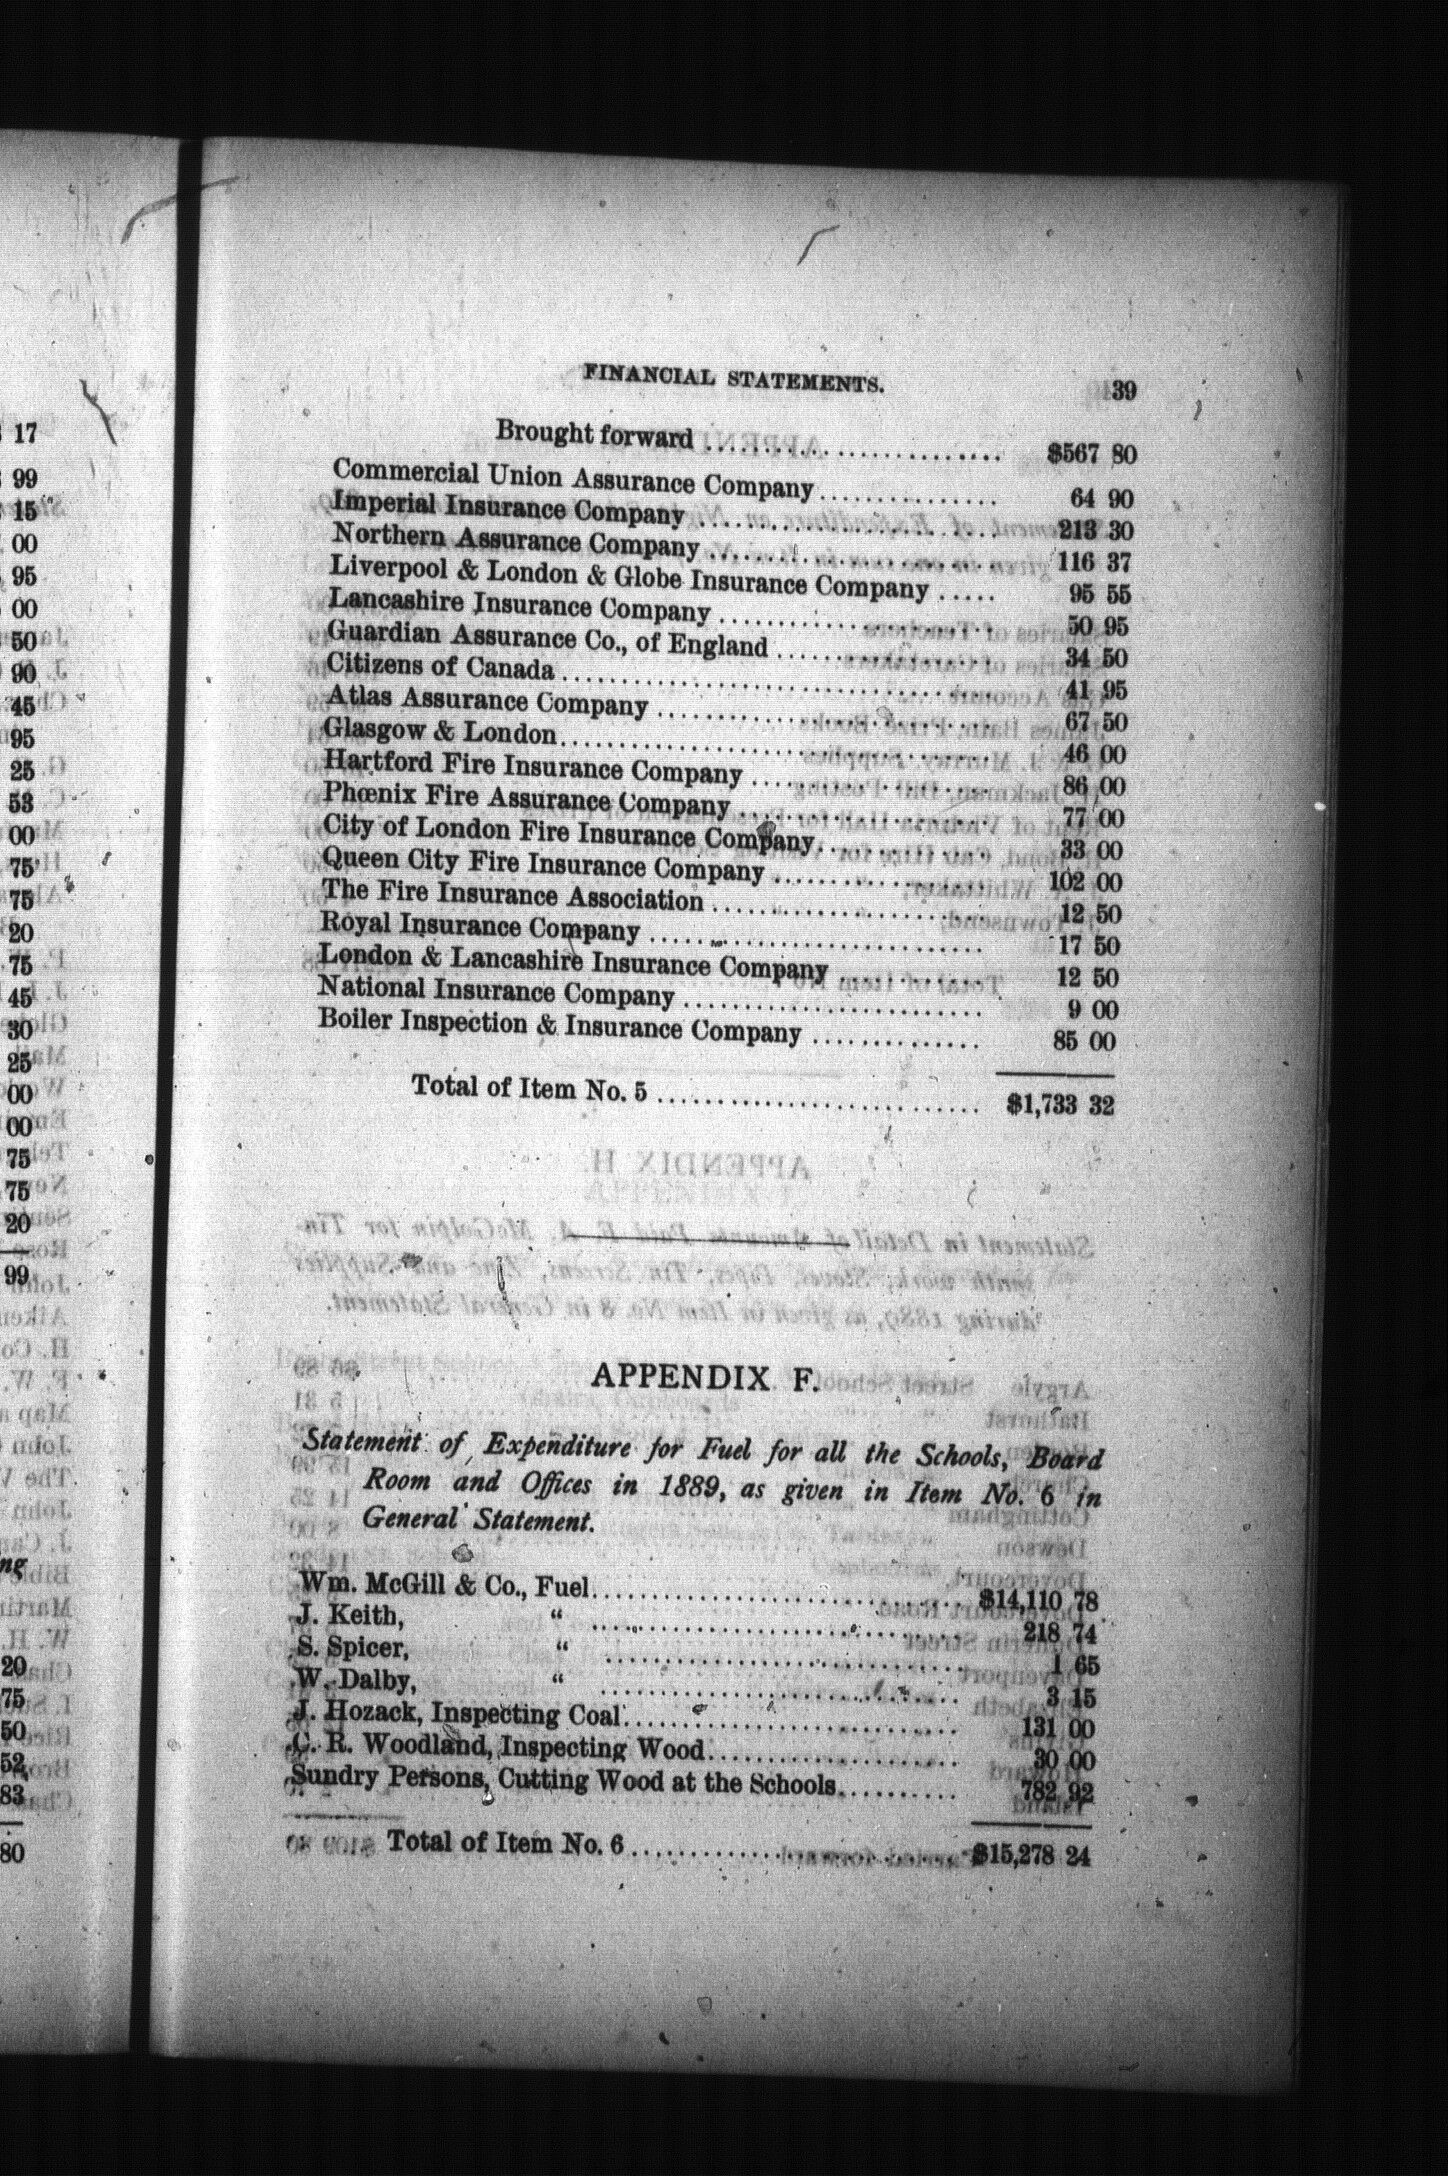 17
99
15
00
95
00
50
90
45
95
25
53
00
75
75
20
75
45
30
25
00
00
75
75
20
99
ng
20
75
50
52
83
80
FINANCIAL STATEMENTS. 39
Brought forward ........................ $567 80
Commercial Union Assurance Company ............... 64 90
Imperial Insurance Company ......................... 213 30
Northern Assurance Company ........................ 116 37
Liverpool & London & Globe Insurance Company ..... 95 55
Lancashire Insurance Company ....................... 50 95
Guardian Assurance Co., of England .................. 34 50
Citizens of Canada ..................................... 41 95
Atlas Assurance Company ............................ 67 50
Glasgow & London ..................................... 46 00
Hartford Fire Insurance Company .................... 86 00
Phœnix Fire Assurance Company ..................... 77 00
City of London Fire Insurance Company ............... 33 00
Queen City Fire Insurance Company .................. 102 00
The Fire Insurance Association ....................... 12 50
Royal Insurance Company ............................ 17 50
London & Lancashire Insurance Company ............. 12 50
National Insurance Company ......................... 9 00
Boiler Inspection & Insurance Company .............. 85 00
Total of Item No. 5 ........................... $1,733 32
APPENDIX F.
Statement of Expenditure for Fuel for all the Schools, Board
Room and Offices in 1889, as given in Item No. 6 in
General Statement.
Wm. McGill & Co., Fuel ............................... $14,110 78
J. Keith, “ ............................... 218 74
S. Spicer, “ .............................. 1 65
W. Dalby, “ .............................. 3 15
J. Hozack, Inspecting Coal ............................ 131 00
C. R. Woodland, Inspecting Wood ..................... 30 00
Sundry Persons, Cutting Wood at the Schools .......... 782 92
Total of Item No. 6 ............................ $15,278 24